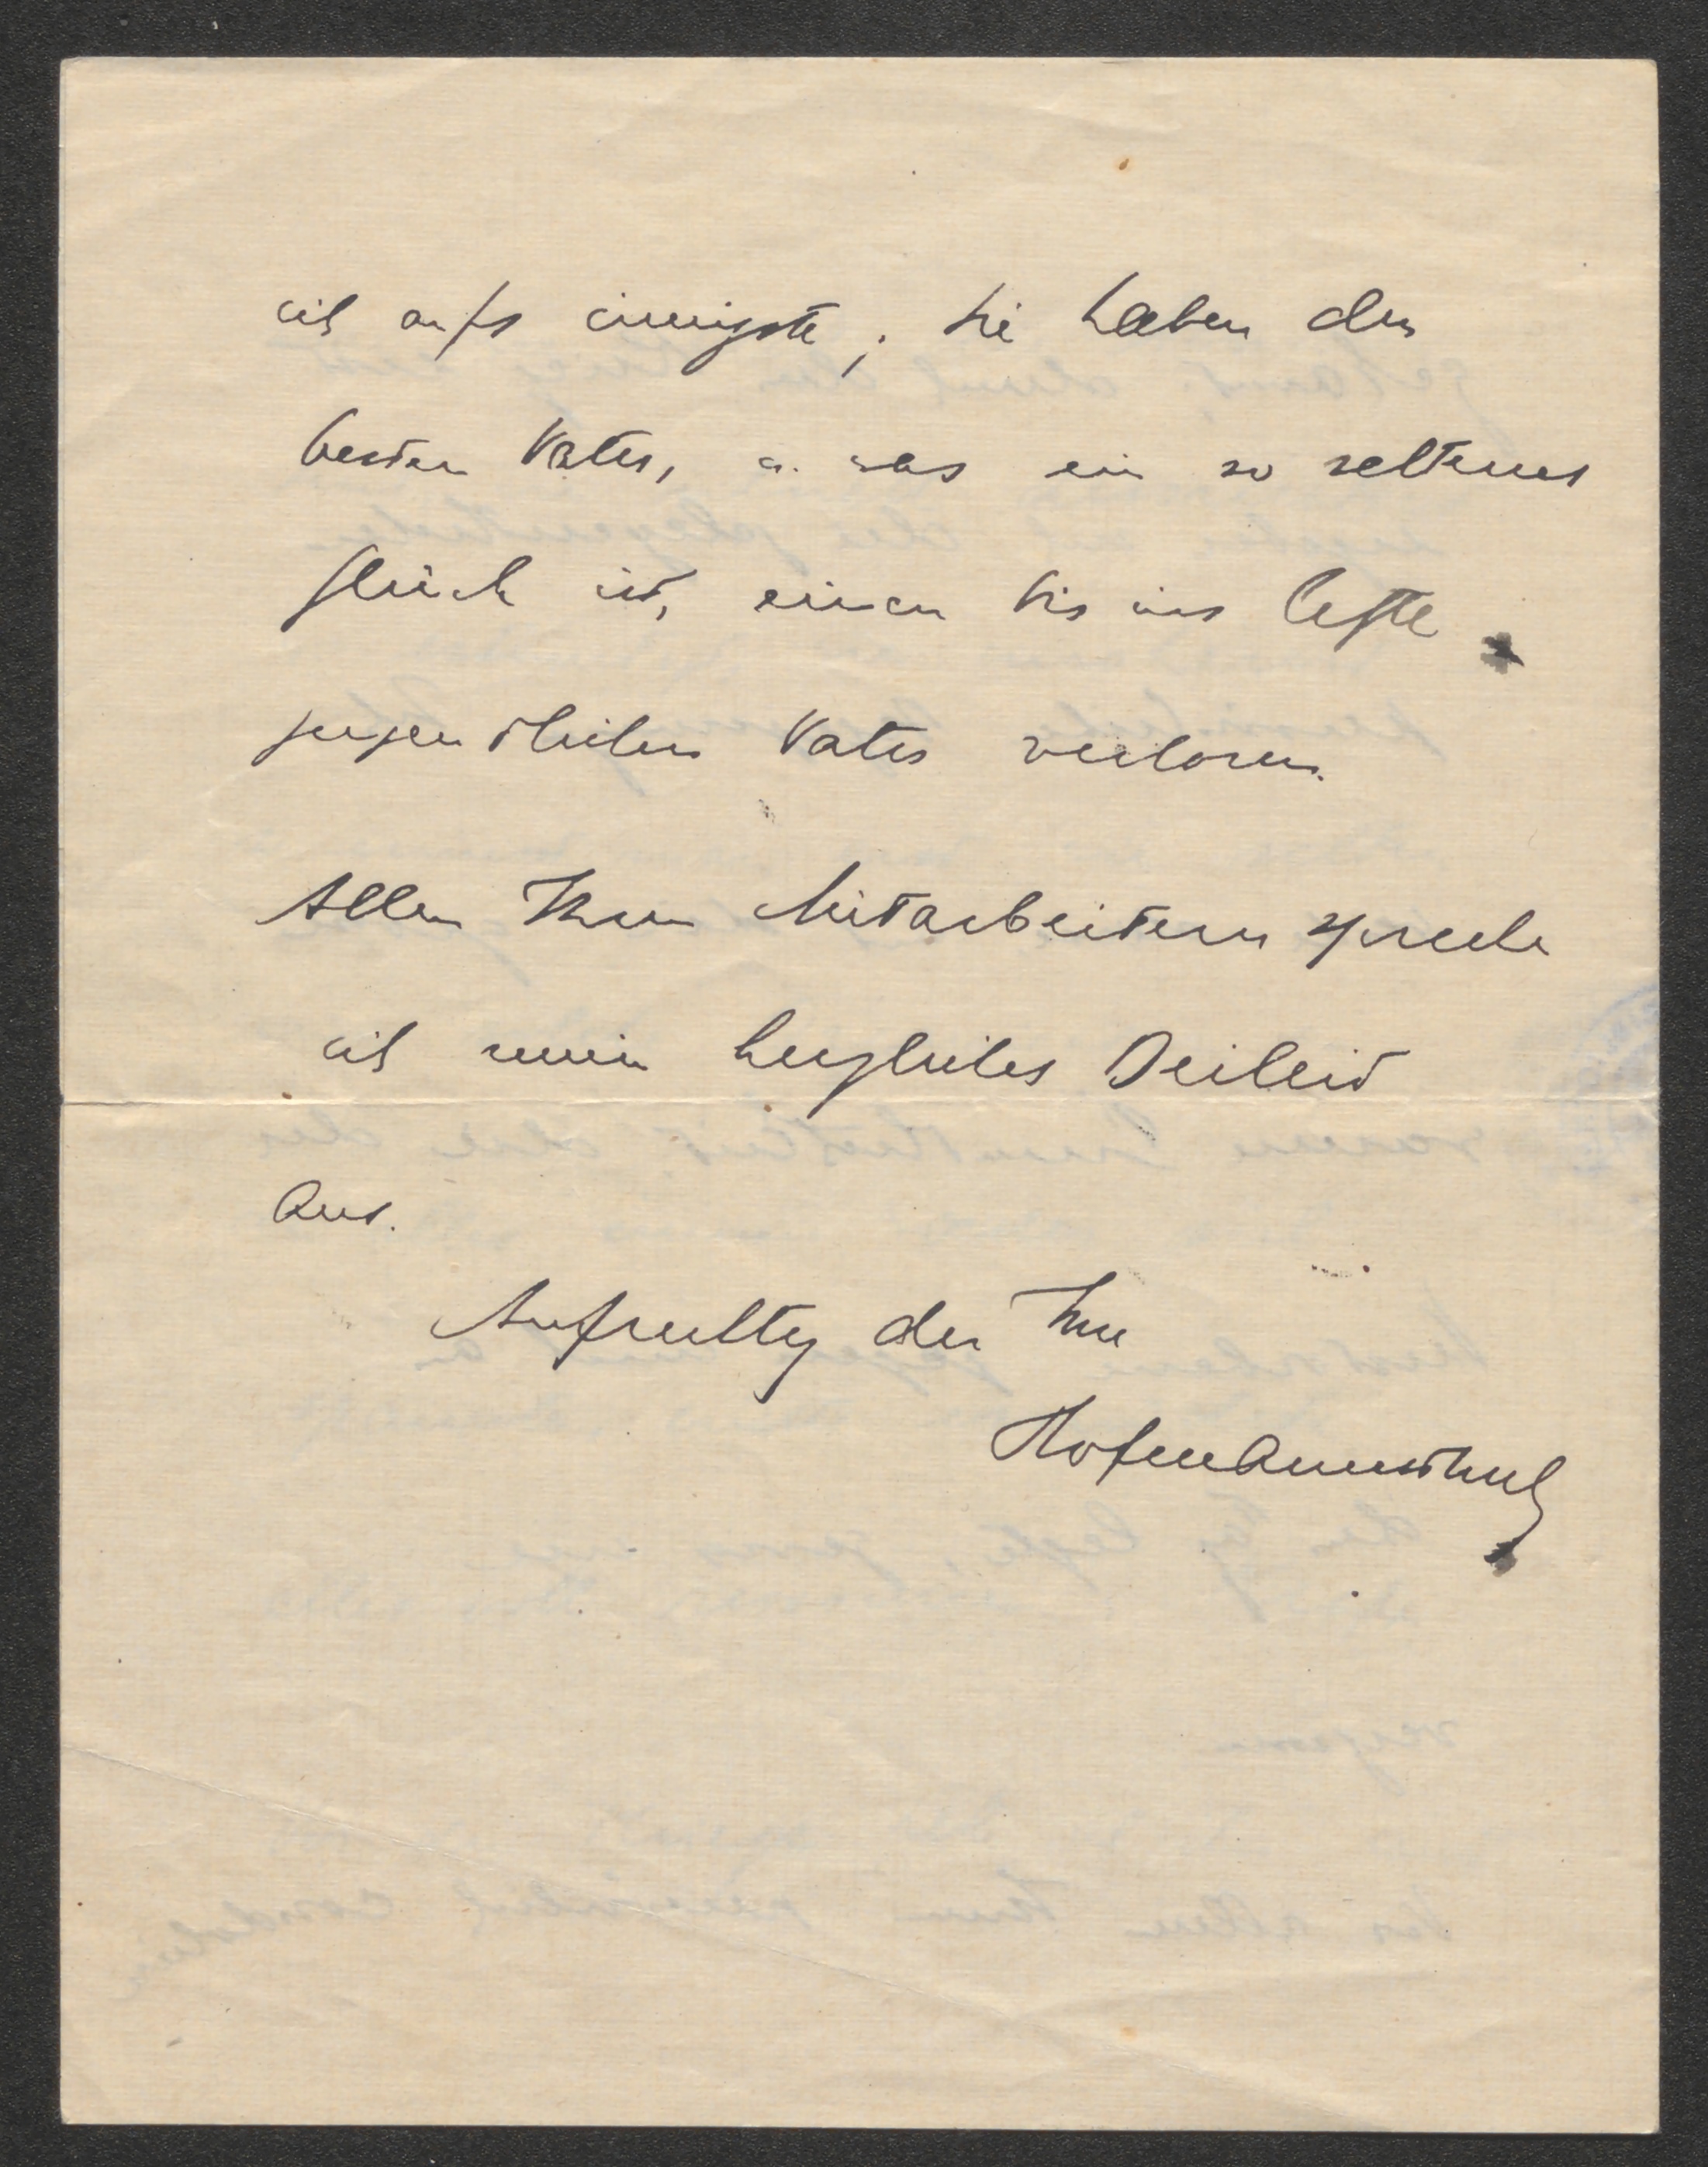 ich aufs innigste; Sie haben den
besten Vater, u. was ein so seltenes
Glück ist, einen bis ins letzte
jugendlichen Vater verloren.
Allen Ihren Mitarbeitern spreche
ich mein herzliches Beileid
aus.
Aufrichtig der Ihre
Hofmannsthal